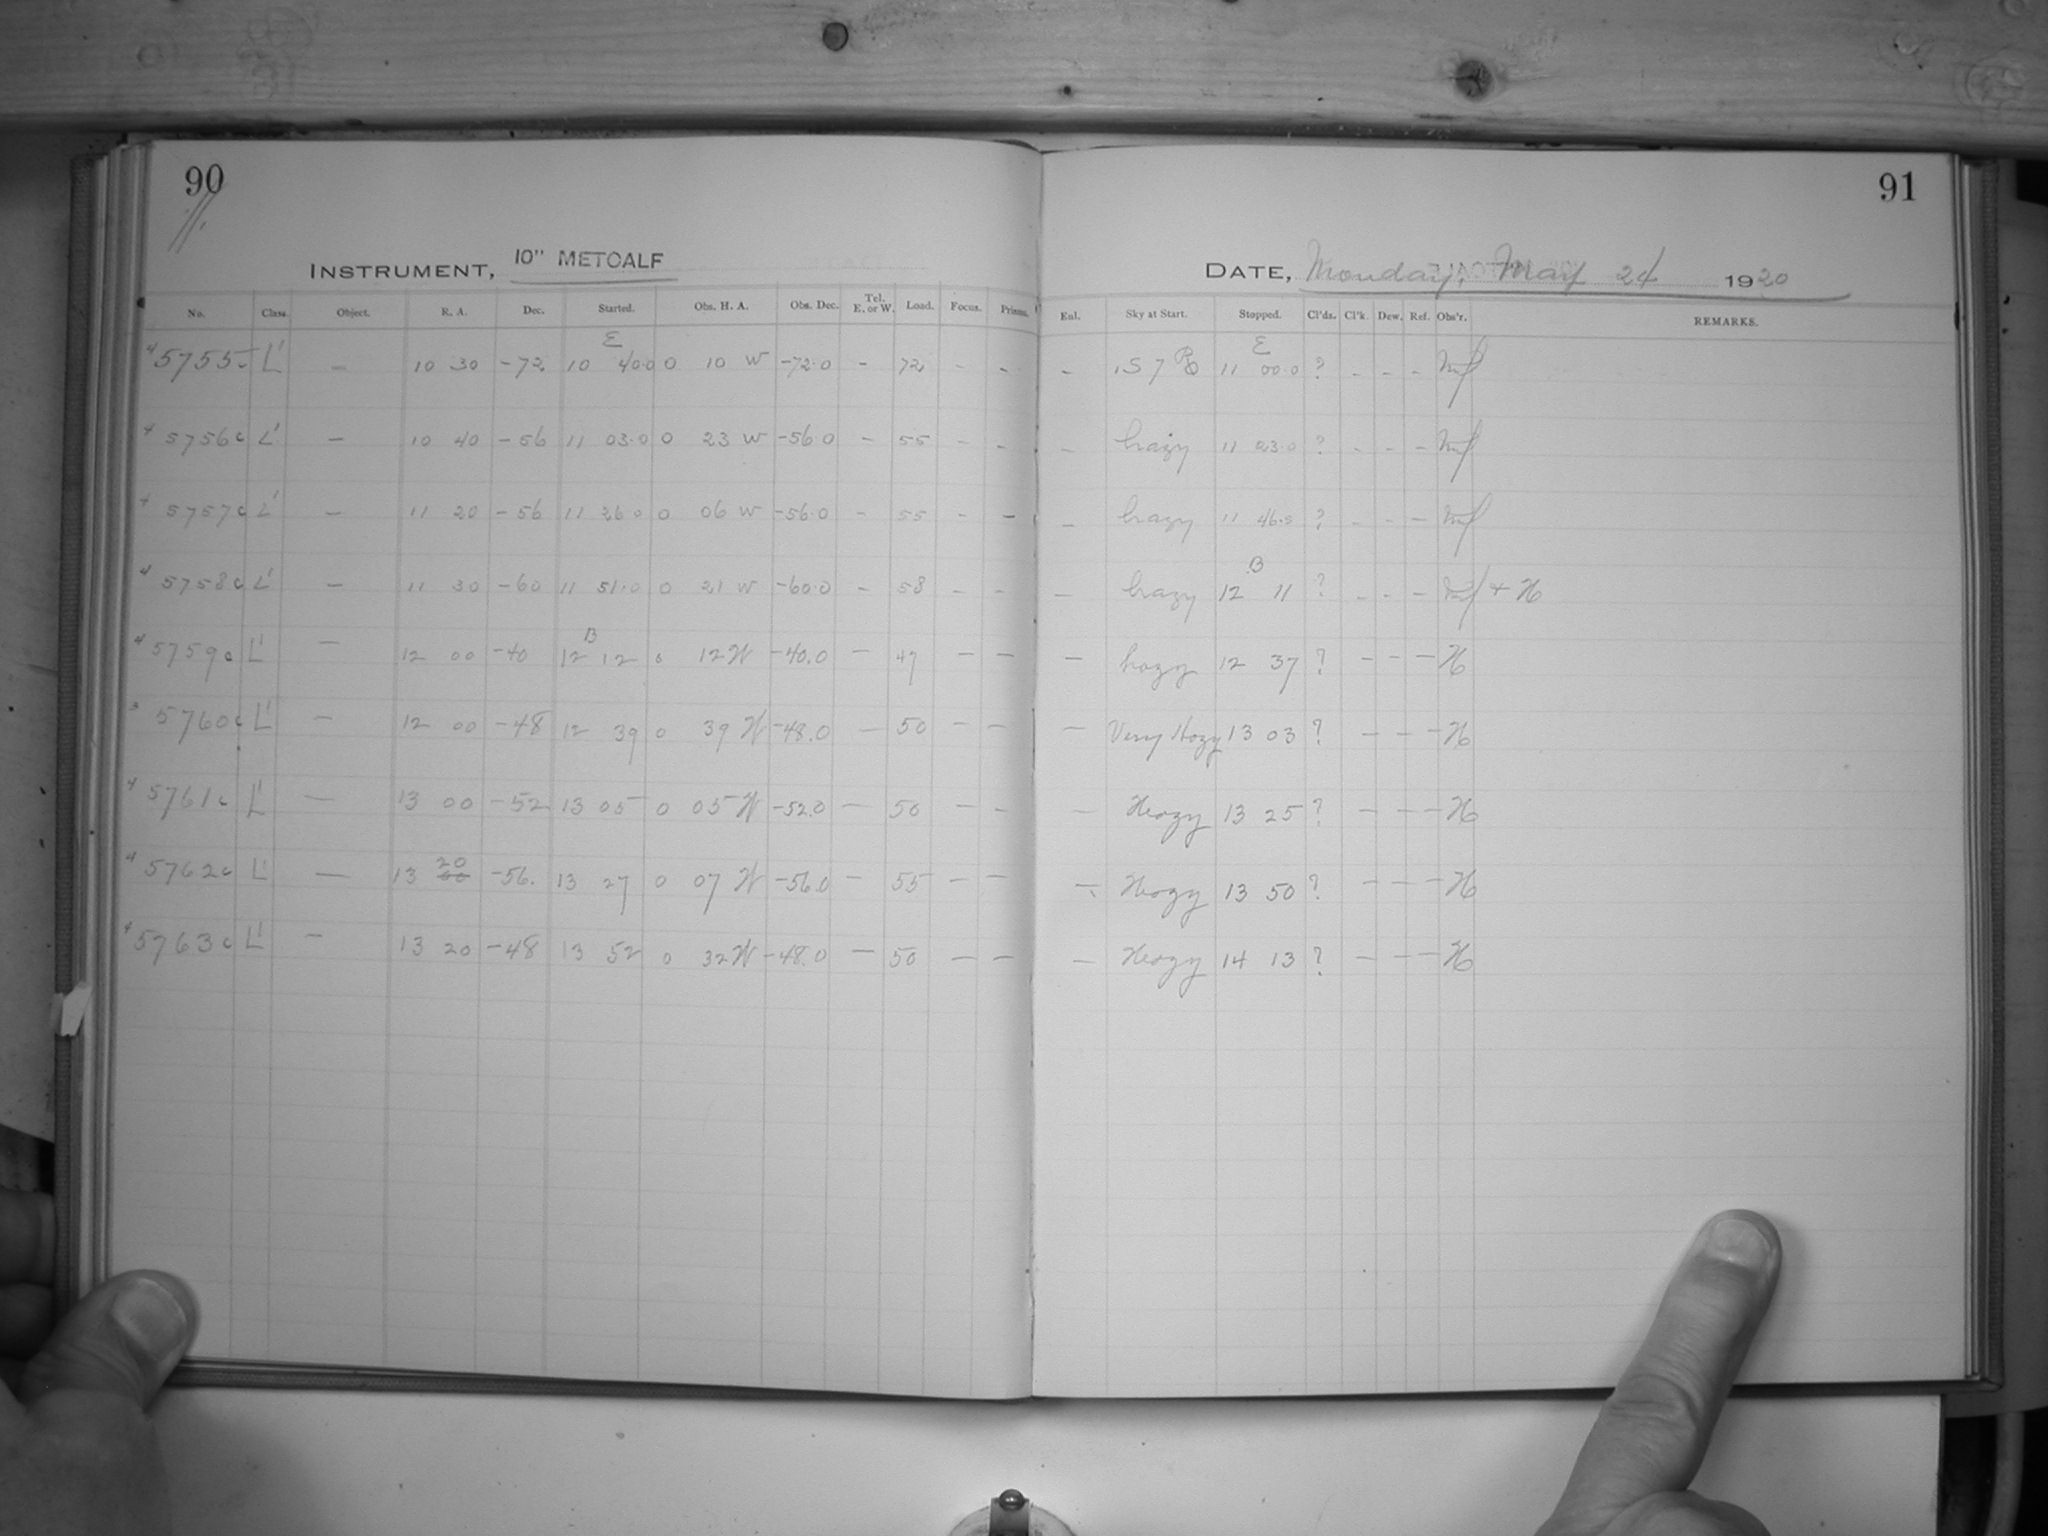 90
91
INSTRUMENT, 10" METCALF
DATE, Monday, May 24 1920
No. Class. Object. R. A. Dec. Started. Obs. H. A. Obs. Dec. Tel. E. or W. Load. Focus. Prisms. Enl. Sky at Start. Stopped. Cl'ds. Cl'k. Dew. Ref. Obs'r. REMARKS.
E E
4 5755c L' — 10 30 -72 10 40.0 0 10 W -72.0 - 72 - - - 11 00.0 ? - - -
4 5756c L' — 10 40 -56 11 03.0 0 23 W -56.0 - 55 - - - hazy 11 23.0 ? - - -
4 5757c L' — 11 20 -56 11 26.0 0 06 W -56.0 - 55 - - - hazy 11 46.0 ? - - -
B
4 5758c L' — 11 30 -60 11 51.0 0 21 W -60.0 - 58 - - - hazy 12 11 ? - - - + H
B
4 5759c L' — 12 00 -40 12 12 0 12 W -40.0 — 47 — — — hazy 12 37 ? — — — H
3 5760c L' — 12 00 -48 12 39 0 39 W -48.0 — 50 — — — Very Hazy 13 03 ? — — — H
4 5761c L' — 13 00 -52 13 05 0 05 W -52.0 — 50 — — — Heazy 13 25 ? — — — H
20
4 5762c L' — 13 00 -56. 13 27 0 07 W -56.0 — 55 — — — Heazy 13 50 ? — — — H
4 5763c L' — 13 20 -48 13 52 0 32 W -48.0 — 50 — — — Heazy 14 13 ? — — — H